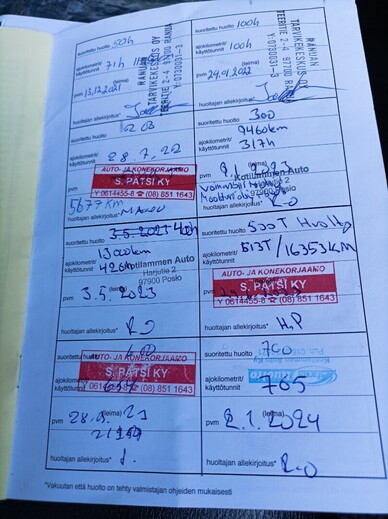 suoritettu huolto 50h
ajokilometrit/
käyttötunnit 71h
pvm 13.12.2021
huoltajan allekirjoitus*
RANUAN
TARVIKEKESKUS OY
TEERITIE 2-4, 97700 RANUA
Y: 0730031-3
suoritettu huolto 100h
ajokilometrit/
käyttötunnit 100h
pvm 29.01.2022
huoltajan allekirjoitus*
RANUAN
TARVIKEKESKUS OY
TEERITIE 2-4, 97700 RANUA
Y: 0730031-3
suoritettu huolto
ajokilometrit/
käyttötunnit
28.7.22
pvm
AUTO- JA KONEKORJAAMO
S. PÄTSI KY
Y 0614455-8 ☎ (08) 851 1643
5677 KM
huoltajan allekirjoitus*
suoritettu huolto 300
9460km
ajokilometrit/
käyttötunnit 317h
(leima)
pvm 2.1.2023
Kotilammen Auto
Harjutie 2
97900 Posio
huoltajan allekirjoitus* R-O
suoritettu huolto 3.5.2023 400h
13000km
ajokilometrit/
käyttötunnit 426h
Kotilammen Auto
Harjutie 2
97900 Posio
pvm 3.5.2023
huoltajan allekirjoitus* R-O
suoritettu huolto 500T Huolto
ajokilometrit/
käyttötunnit 513T/16353KM
AUTO- JA KONEKORJAAMO
S. PÄTSI KY
pvm
Y 0614455-8 ☎ (08) 851 1643
huoltajan allekirjoitus* H.P
suoritettu huolto 600
AUTO- JA KONEKORJAAMO
ajokilometrit/
käyttötunnit
S. PÄTSI KY
Y 0614455-8 ☎ (08) 851 1643
(leima)
pvm 28.9.23
huoltajan allekirjoitus*
suoritettu huolto 700
ajokilometrit/
käyttötunnit 705
(leima)
pvm 2.1.2024
huoltajan allekirjoitus* R-O
*Vakuutan että huolto on tehty valmistajan ohjeiden mukaisesti